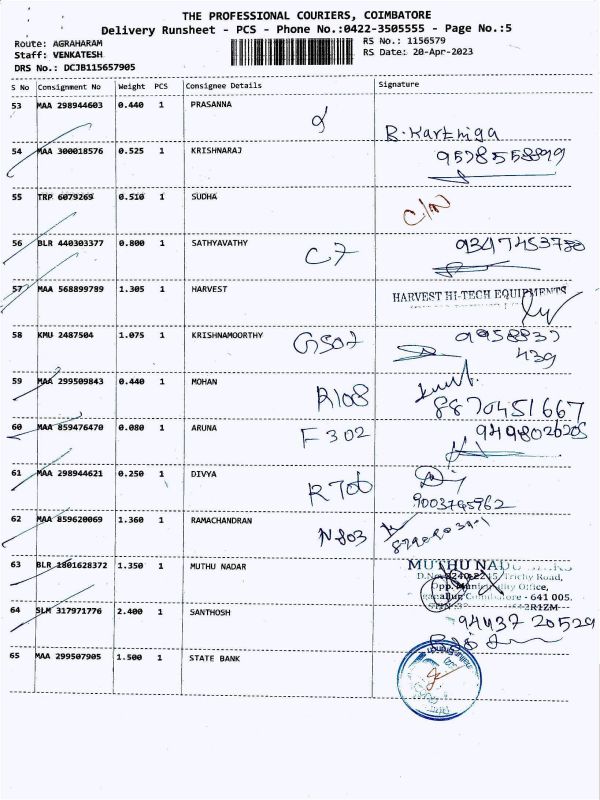 THE PROFESSIONAL COURIERS, COIMBATORE
Delivery Runsheet - PCS - Phone No.:0422-3505555 - Page No.:5
Route: AGRAHARAM
RS No.: 1156579
Staff: VENKATESH
RS Date: 20-Apr-2023
DRS No.: DCJB115657905
S No Consignment No Weight PCS Consignee Details Signature
53 MAA 298944603 0.440 1 PRASANNA
B. Karthiga
54 MAA 300018576 0.525 1 KRISHNARAJ
55 TRP 6079269 0.510 1 SUDHA C/N
56 BLR 440303377 0.800 1 SATHYAVATHY C7 9347453780
57 MAA 568899789 1.305 1 HARVEST HARVEST HI-TECH EQUIPMENTS
58 KMU 2487504 1.075 1 KRISHNAMOORTHY G507 9958837
439
59 MAA 299509843 0.440 1 MOHAN R108
8870451667
60 MAA 859476470 0.080 1 ARUNA F302
61 MAA 298944621 0.250 1 DIVYA R706
9003795962
62 MAA 859620069 1.360 1 RAMACHANDRAN N803
63 BLR 1801628372 1.350 1 MUTHU NADAR MUTHU
Trichy Road,
Opp. Municipality Office,
Coimbatore - 641 005.
64 SLM 317971776 2.400 1 SANTHOSH 94437 20529
65 MAA 299507905 1.500 1 STATE BANK